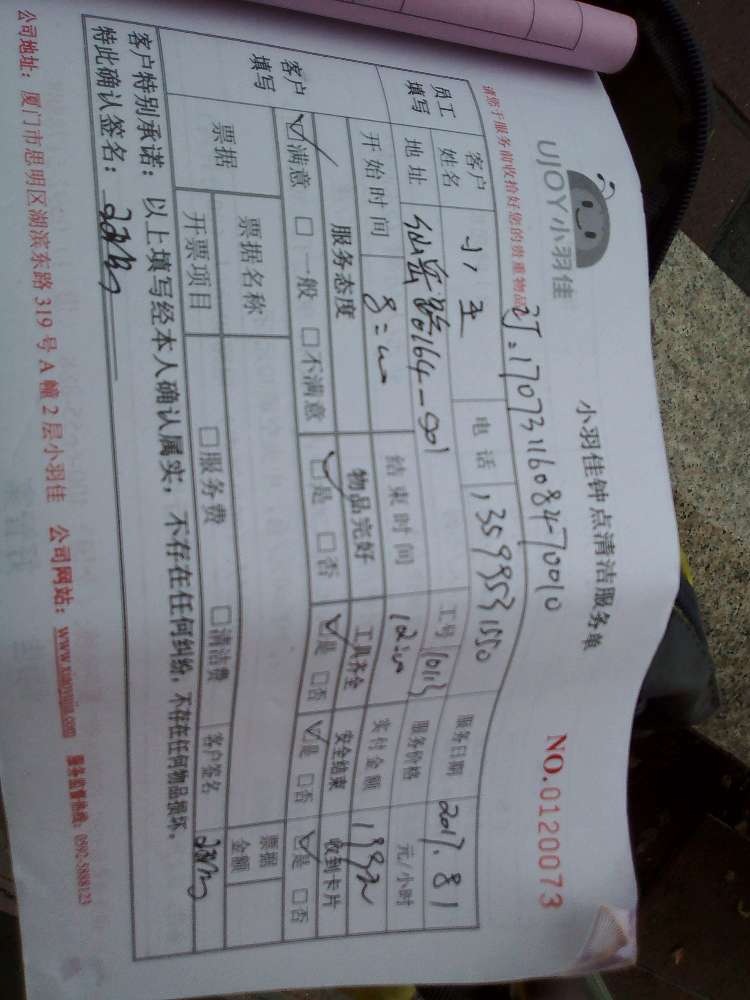 UJOY小羽佳
小羽佳钟点清洁服务单
NO.0120073
请您于服务前收拾好您的贵重物品
订:1707311608470010
员工填写
客户姓名 小王 电话 13599531550 服务日期 2017.8.1
地址 仙岳路0164-901 工号 10113 服务价格 元/小时
开始时间 8:00 结束时间 12:00 实付金额
客户填写
服务态度 物品完好 工具齐全 安全结束 收到卡片
☑满意 □一般 □不满意 ☑是 □否 ☑是 □否 ☑是 □否 ☑是 □否
票据 票据名称 票据金额
开票项目 □服务费 □清洁费 客户签名
客户特别承诺：以上填写经本人确认属实，不存在任何纠纷，不存在任何物品损坏。
特此确认签名：
公司地址：厦门市思明区湖滨东路319号A幢2层小羽佳 公司网站：www.xiaoyujia.com 服务监督热线：0592-5888123